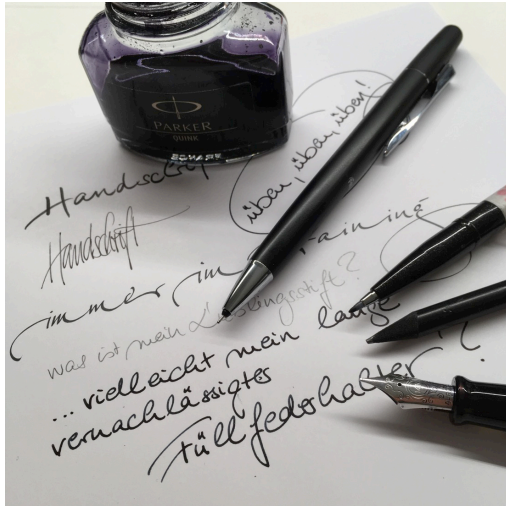 PARKER
QUINK
Handschrift
üben, üben, üben!
Handschrift
immer im Training
was ist mein Lieblingsstift?
... vielleicht mein lange
vernachlässigtes
Füllfederhalter?